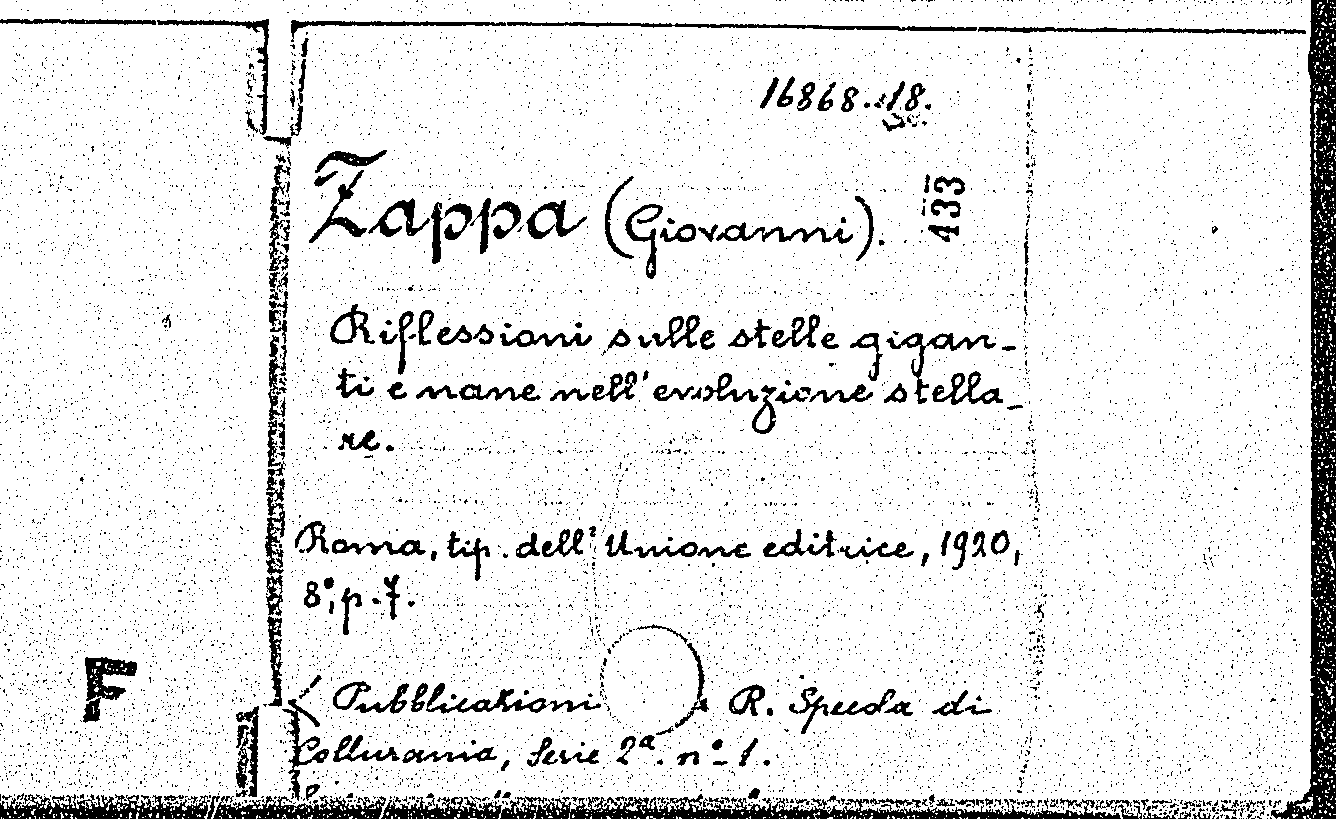 16868..18.
Zappa (Giovanni).
433
Riflessioni sulle stelle gigan-
ti e nane nell'evoluzione stella-
re.
Roma, tip. dell'Unione editrice, 1920,
8°, p. 7.
F
( Pubblicazioni R. Specola di
Collurania, Serie 2ª. n° 1.